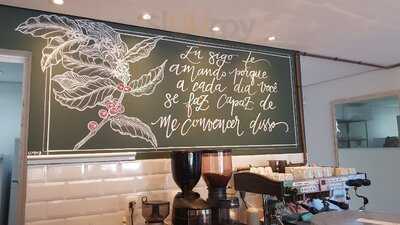 Eu sigo te
amando porque
a cada dia você
se faz capaz de
me convencer disso